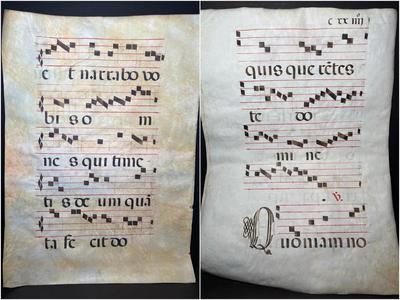 e t narrabo vo
bis o m
ne s qui time
tis de um quã
ta fe cit do
c xx iiij
quis que rẽtes
te do
mi ne
℟.
Quoniam no